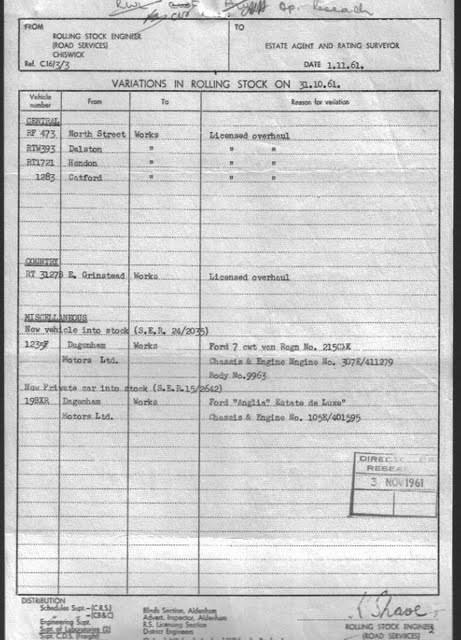 Op. Research
FROM
ROLLING STOCK ENGINEER
(ROAD SERVICES)
CHISWICK
Ref. C16/3/3
TO
ESTATE AGENT AND RATING SURVEYOR
DATE 1.11.61.
VARIATIONS IN ROLLING STOCK ON 31.10.61.
Vehicle number From To Reason for variation
CENTRAL
RF 473. North Street Works Licensed overhaul
RTW393 Dalston " " "
RT1721 Hendon " " "
1283 Catford " " "
COUNTRY
RT 3127B E. Grinstead Works Licensed overhaul
MISCELLANEOUS
New vehicle into stock (S.E.R. 24/2035)
Dagenham Works Ford 7 cwt van Regn No.
Motors Ltd. Chassis & Engine Nngine No. 307E/411279
Body No.9963
New Private car into stock (S.E.R.15/2642)
198XR Dagenham Works Ford "Anglia" Estate de Luxe"
Motors Ltd. Chassis & Engine No. 105E/401595
3 NOV 1961
DISTRIBUTION
Schedules Supt.—(C.R.S.)
—(CB&C)
Engineering Supt.
Supt. of Laboratories (2)
Supt. C.D.S. (Freight)
Blinds Section, Aldenham
Advert. Inspector, Aldenham
R.S. Licensing Section
District Engineers
Shave
ROLLING STOCK ENGINEER
(ROAD SERVICES)